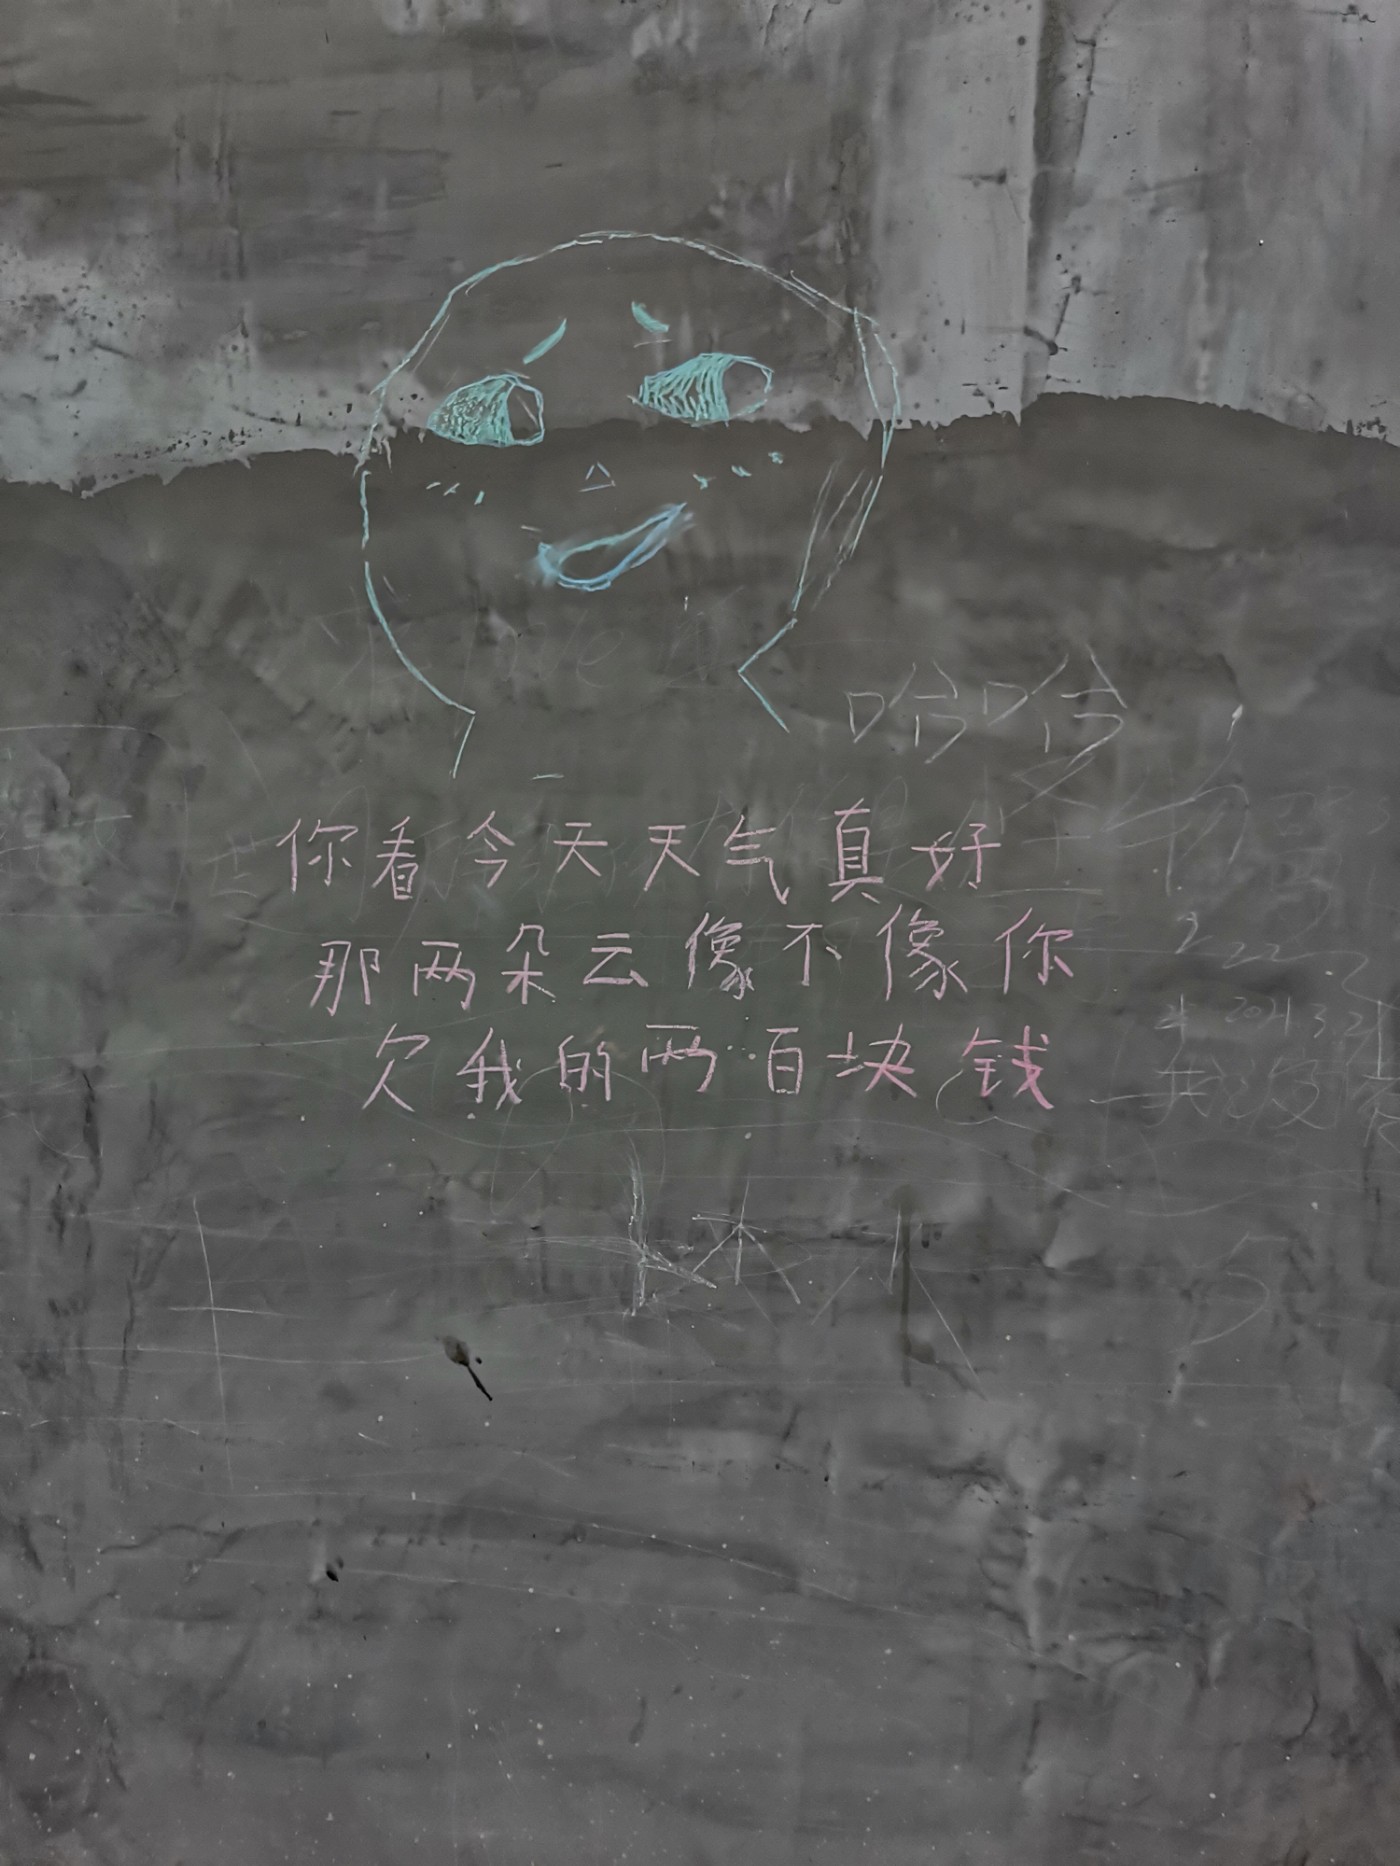 哈哈
你看今天天气真好
那两朵云像不像你
欠我的两百块钱
2021.3.21